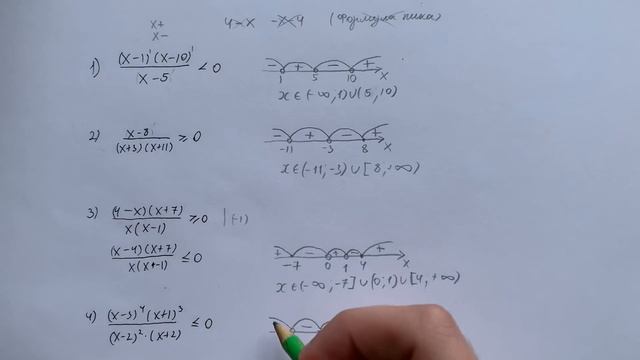 x+
x−
4−x −x<4 (Формула пика)
1) (x−1)¹(x−10)¹ / x−5 < 0
− + − +
1 5 10 x
x∈(−∞,1)∪(5,10)
2) x−8 / (x+3)(x+11) ≥ 0
− + − +
−11 −3 8 x
x∈(−11;−3)∪[8,+∞)
3) (4−x)(x+7) / x(x−1) ≥ 0 |(−1)
(x−4)(x+7) / x(x−1) ≤ 0
+ − + − +
−7 0 1 4 x
x∈(−∞,−7]∪(0;1)∪[4,+∞)
4) (x−3)⁴(x+1)³ / (x−2)²·(x+2) ≤ 0
−